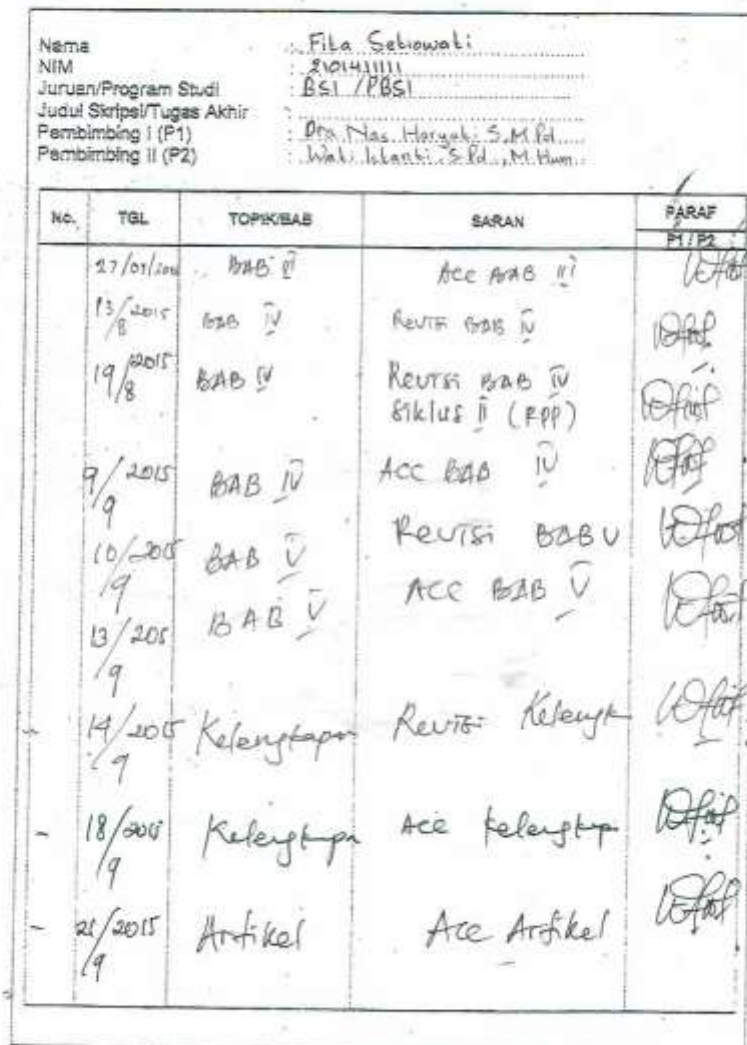 Nama : Fita Setiowati
NIM : 2101411111
Jurusan/Program Studi : BSI / PBSI
Judul Skripsi/Tugas Akhir :
Pembimbing I (P1) : Dra Nas Haryati S, M.Pd
Pembimbing II (P2) : Wati Istanti, S.Pd., M.Hum
No. TGL TOPIK/BAB SARAN PARAF
P1 / P2
27/07/ BAB III ACC BAB III
13/8 2015 BAB IV Revisi BAB IV
19/8 2015 BAB IV Revisi BAB IV
Siklus II (RPP)
9/9 2015 BAB IV ACC BAB IV
10/9 2015 BAB V Revisi BAB V
13/9 2015 BAB V ACC BAB V
14/9 2015 Kelengkapan Revisi Kelengk
18/9 2015 Kelengkapan Acc Kelengkapan
21/9 2015 Artikel Acc Artikel